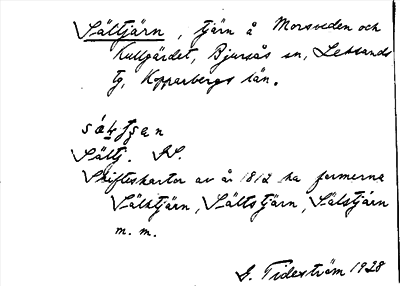 Sältjärn, tjärn å Morsveden och
Kullgärdet, Bjursås sn, Leksands
tg, Kopparbergs län.
Sältj. SS.
Skifteskartor av år 1812 ha formerna
Sälktjärn, Sältstjärn, Sälstjärn
m. m.
G. Tideström 1928